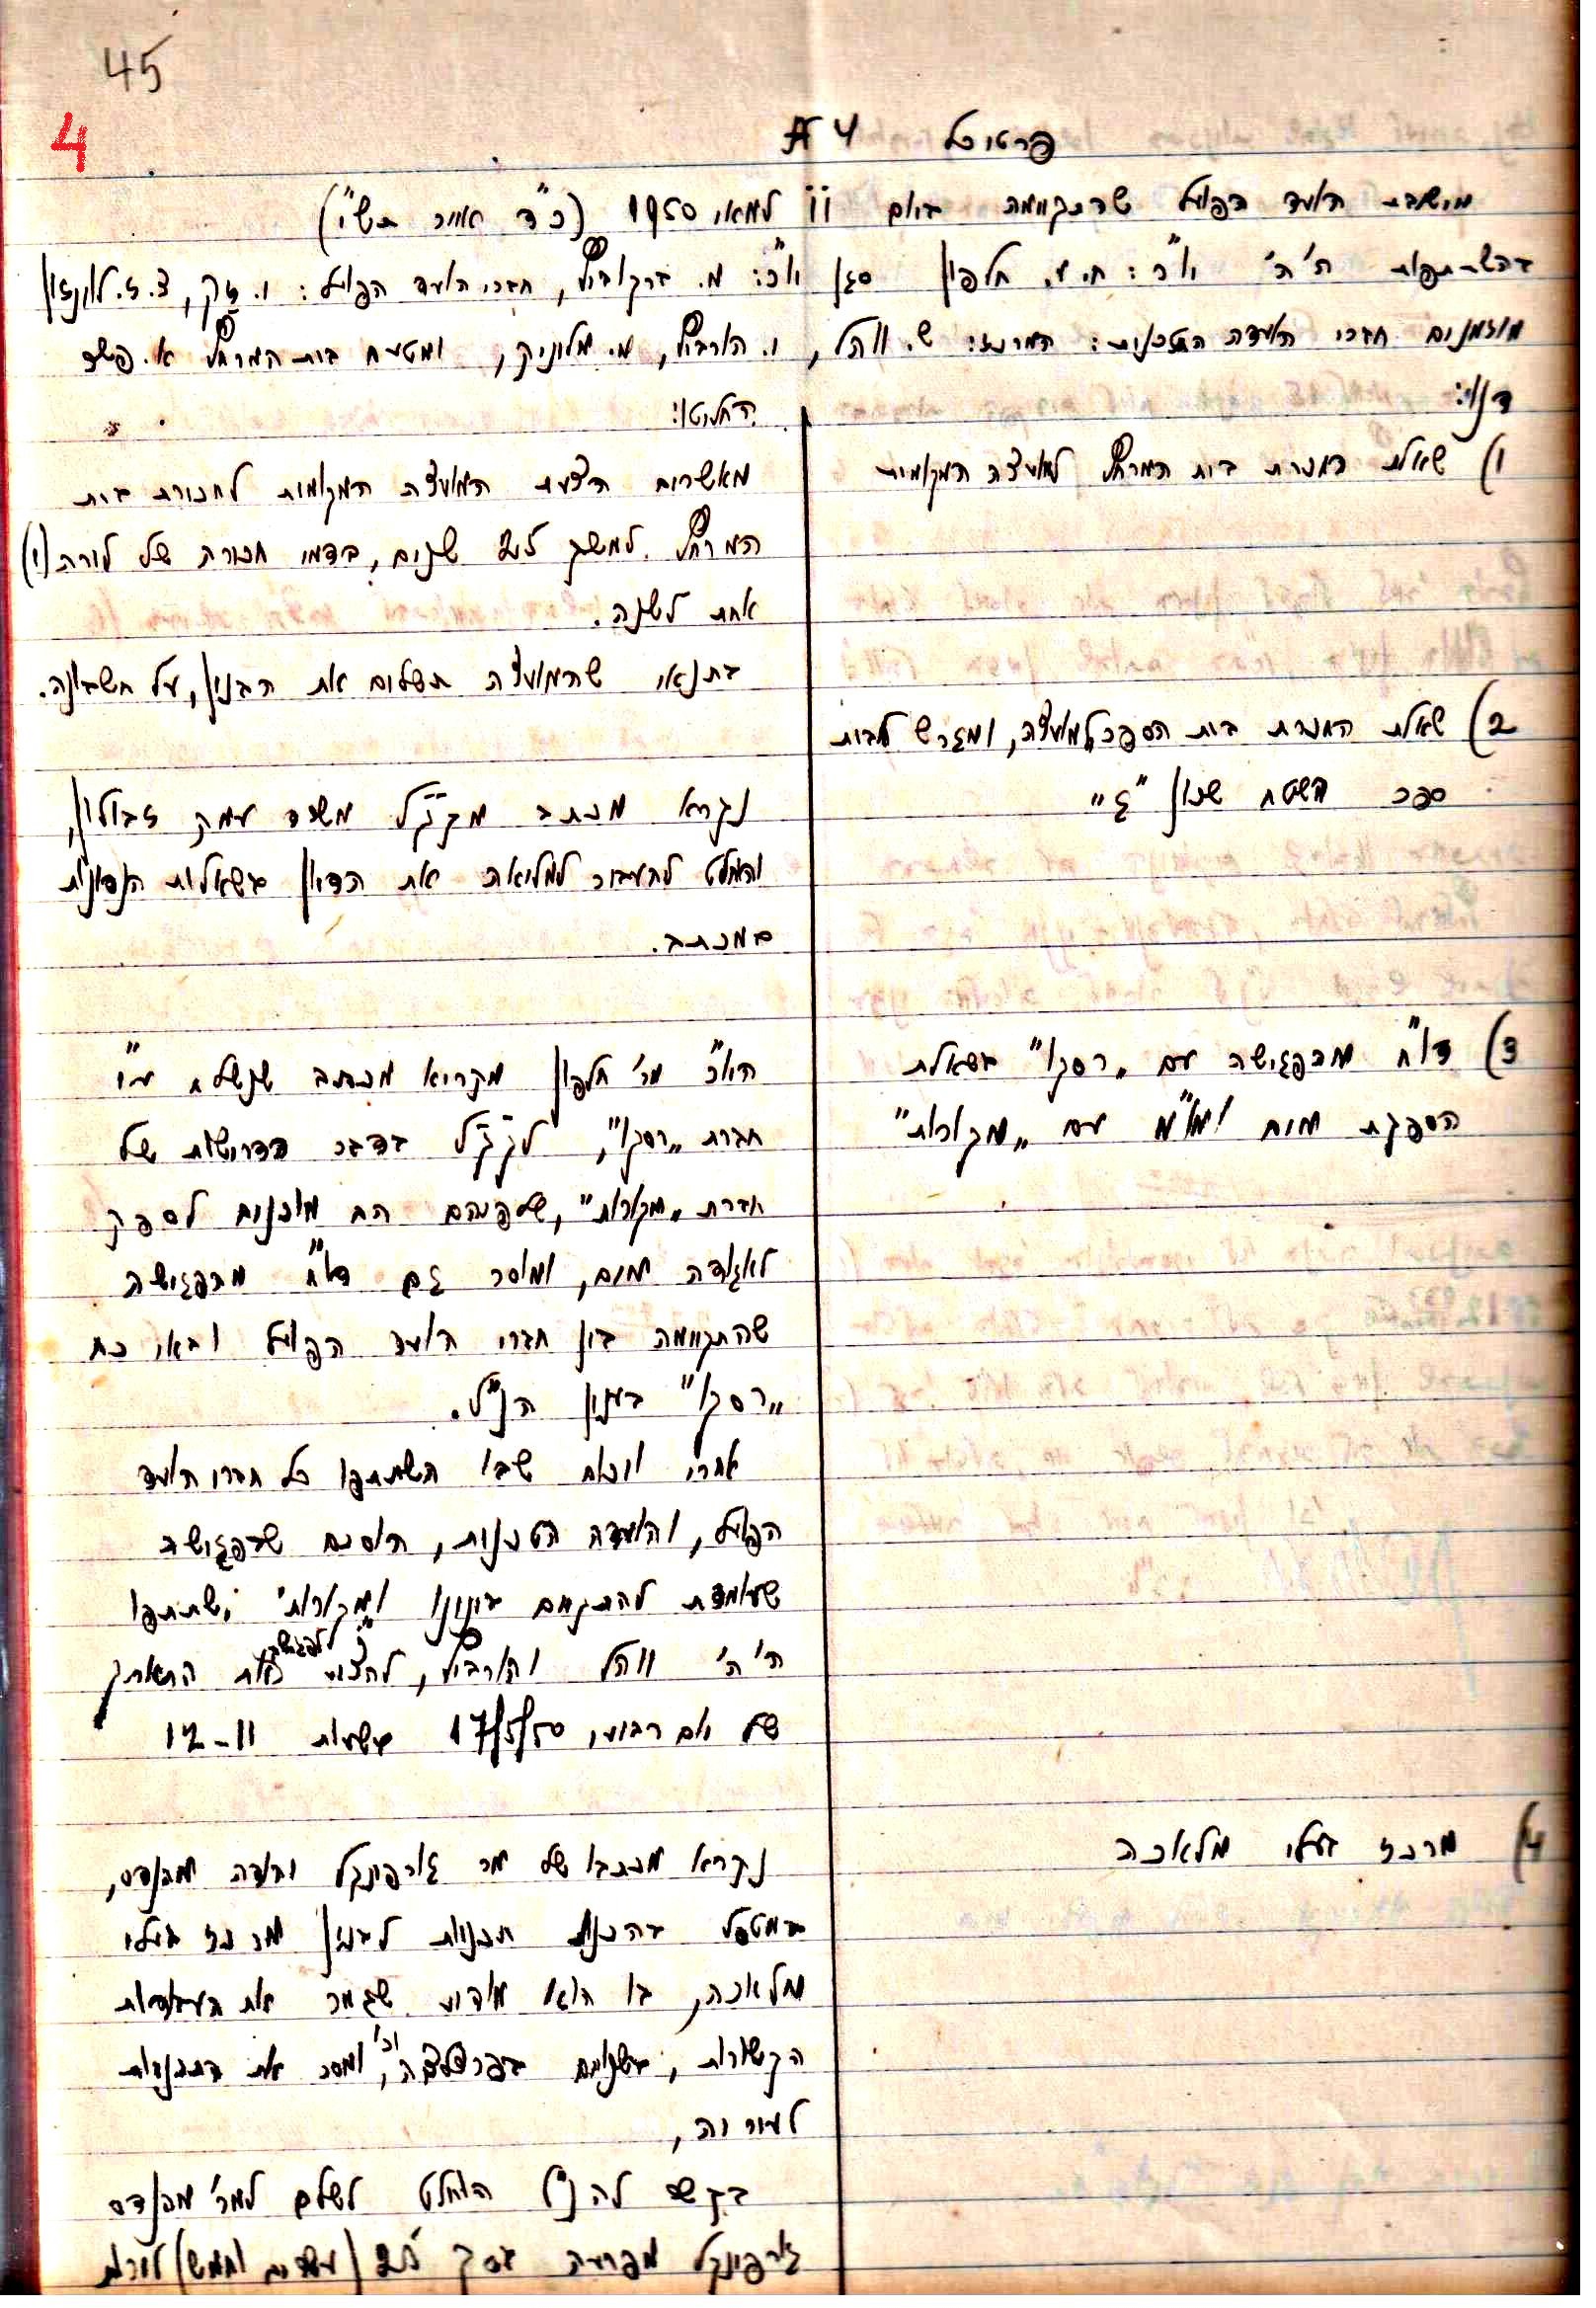 45
4
פרטיכל A 4
מישיבת הועד הפועל שהתקיימה ביום 11 למאי 1950 (כ"ד אייר תש"י)
בהשתתפות ה'ה' יו"ר: ח.ע. חלפון סגן יו"ר: מ. ברקוביץ, חברי הועד הפועל: י. זק, צ.ז. לוינזון
מוזמנים חברי הועדה הטכנית: המרכז: ש. ווהל, י. הורביץ, מ. מלניק, ומטעם בית המרחץ א.
דנו:
החליטו:
1) שאלת החכרת בית המרחץ למועצה המקומית
מאשרים הצעת המועצה המקומית לחכירת בית
המרחץ למשך שנים, בדמי חכירה של לירה (1)
אחת לשנה.
בתנאי שהמועצה תשלים את הבנין, על חשבונה.
2) שאלת החכרת בית הספר למועצה, ומגרש לבית
ספר בשטח שכון "ג"
נקרא מכתב מקק"ל משרד עמק זבולון,
והוחלט להעביר למליאה את הדיון בשאלות הנדונות
במכתב.
3) דו"ח מהפגישה עם "רסקו" בשאלת
הספקת מים ומו"מ עם "מקורות"
היו"ר מר' חלפון מקריא מכתב שנשלח ע"י
חברת "רסקו", לקק"ל בדבר הדרישות של
חברת "מקורות", שלפיהם הם מוכנים לספק
לאגודה מים, ומוסר גם דו"ח מהפגישה
שהתקיימה בין חברי הועד הפועל ובאי כח
"רסקו" בענין הנ"ל.
אחרי וכוח שבו השתתפו כל חברי הועד
הפועל, והועדה הטכנית, הוסכם שבפגישה
שעומדת להתקיים בינינו ו"מקורות" ישתתפו
ה'ה' ווהל והורביץ, להציע לפגישה את התאריך
של יום רביעי, 17/5/50 בשעות 11-12
4) מרכז בעלי מלאכה
נקרא מכתבו של מר גורפינקל יהודה מהנדס,
המטפל בהכנת תכניות לבנין מרכז בעלי
מלאכה, בו הוא מודיע שגמר את העבודות
הקשורות, בשנוים בפרצלציה, וכו' ומסר את התכניות
לעיריה,
בקשר להנ"ל הוחלט לשלם למר' מהנדס
גורפינקל מפרעה בסך 25 (עשרים וחמש) לירות